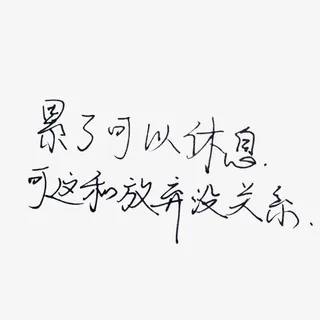 累了可以休息.
可这和放弃没关系.